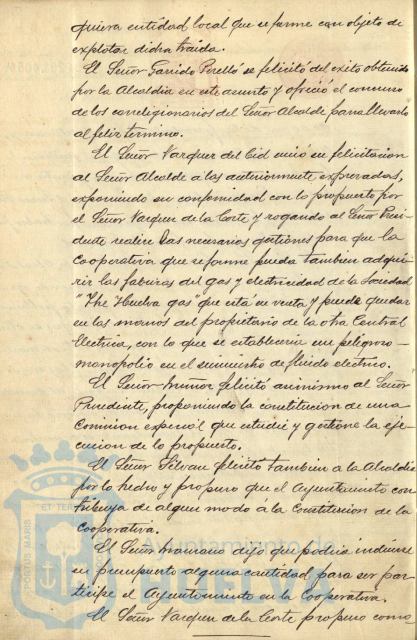 quiera entidad local que se forme con objeto de
explotar dicha traida.
El Señor Garrido Perelló se felicitó del exito obtenido
por la Alcaldia en este asunto y ofreció el concurso
de los correligionarios del Señor Alcalde para llevarlo
al feliz termino.
El Señor Vazquez del Cid unió su felicitacion
al Señor Alcalde a las anteriormente expresadas,
exponiendo su conformidad con lo propuesto por
el Señor Vazquez de la Corte y rogando al Señor Presi-
dente realice las necesarias gestiones para que la
Cooperativa que se forme pueda tambien adqui-
rir las fabricas del gas y electricidad de la Sociedad
"The Huelva gas" que está en venta y puede quedar
en las manos del propietario de la otra Central
Electrica, con lo que se estableceria un peligroso
monopolio en el suministro de fluido electrico.
El Señor Muñoz felicitó asimismo al Señor
Presidente, proponiendo la constitucion de una
Comision especial que estudie y gestione la eje-
cucion de lo propuesto.
El Señor felicitó tambien a la Alcaldia
por lo hecho y propuso que el Ayuntamiento con-
tribuya de algun modo á la Constitucion de la
Cooperativa.
El Señor dijo que podria incluirse
en presupuesto alguna cantidad para ser par-
tícipe el Ayuntamiento en la Cooperativa.
El Señor Vazquez de la Corte propuso como
PORTUS MARIS ET TER
Ayuntamiento de
HUEL